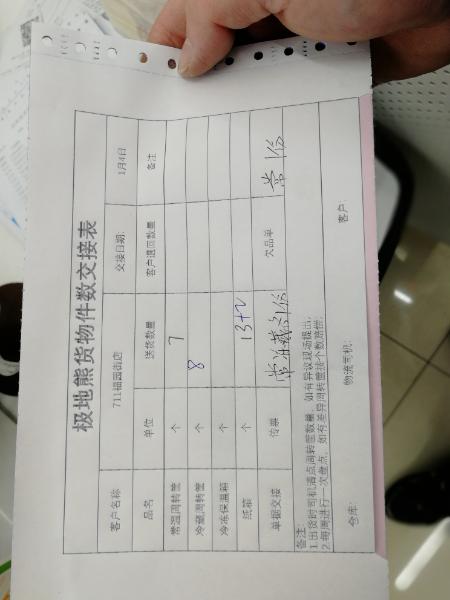 极地熊货物件数交接表
客户名称 711福园街店 交接日期: 1月4日
品名 单位 送货数量 客户退回数量 备注
常温周转筐 个 7
冷藏周转筐 个 8
冷冻保温箱 个
纸箱 个 13+2
单据交接 传票 常冷藏各1份 欠品单 常1份
备注:
1.出货时司机清点周转筐数量，如有异议现场提出，
2.每周进行一次盘点，如有差异周转筐按个数赔偿;
仓库: 物流司机: 客户: